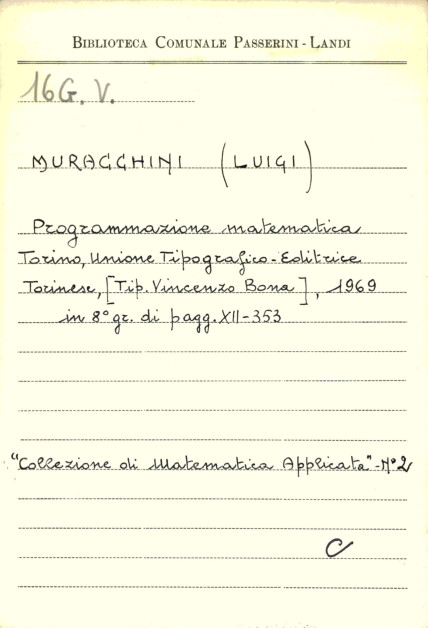 BIBLIOTECA COMUNALE PASSERINI - LANDI
16G. V.
MURACCHINI (LUIGI)
Programmazione matematica
Torino, Unione Tipografico-Editrice
Torinese, [Tip. Vincenzo Bona], 1969
in 8° gr. di pagg. XII-353
"Collezione di Matematica Applicata" - N° 2
C